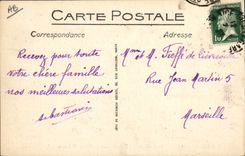 CARTE POSTALE
Correspondance
Adresse
Recevez pour toute
votre chère famille
nos meilleures salutations
Sebastiani
Mme et M. Fieffi de
Rue Jean Martin 5
Marseille